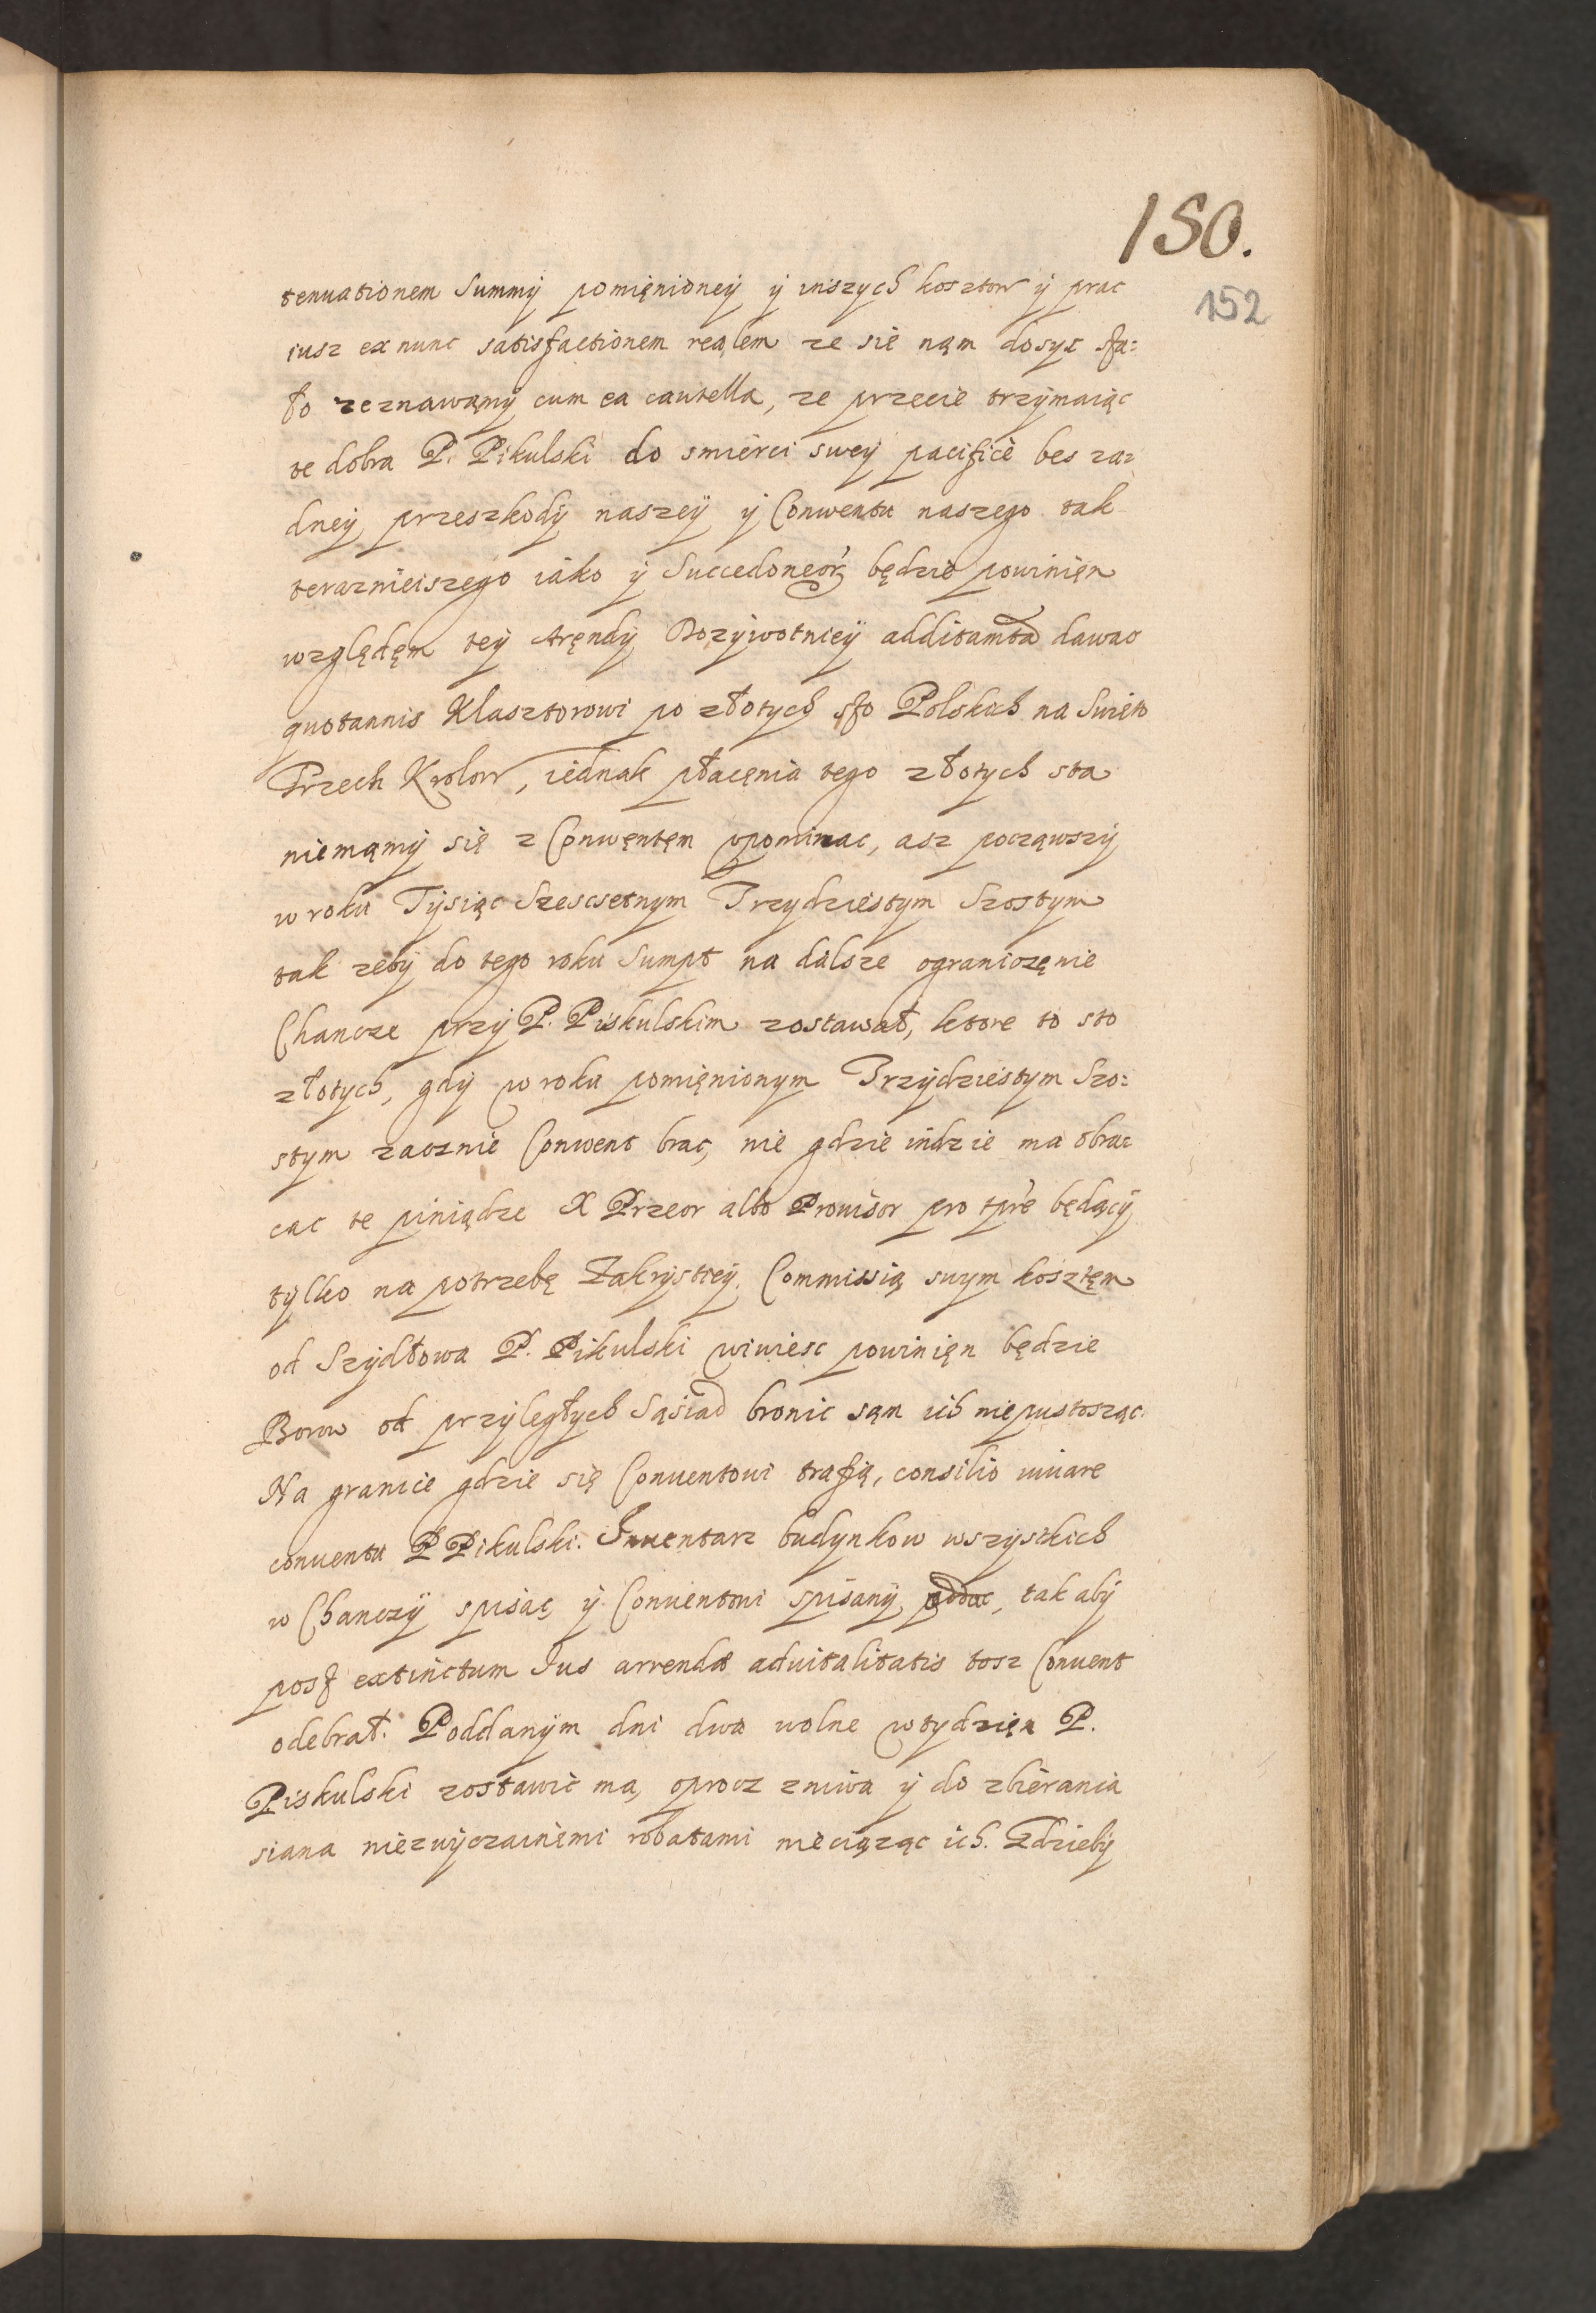 150.
152
tenuationem Summy pomięnioney y inszych kosztow y prac
iusz ex nunc satisfactionem realem ze się nąm dosyc sta=
ło zeznawąmy cum ea cautella, ze przecie trzymaiąc
te dobra P. Pikulski do smierci swey pacifice bes za=
dney przeszkody naszey y Conwentu naszego tak
teraznieiszego iako y Succedoneor, będzie powinięn
względęm tey Aręndy Dozywotniey additamta dawac
quotannis Klasztorowi po złotych sto Polskich na Swięto
Trzech Krolow, iednak płacęnia tego złotych sta
niemąmy się z Conwęntęm upominac, asz począwszy
w roku Tysiąc Szescsetnym Trzydziestym Szostym
tak zeby do tego roku Sumpt na dalsze ograniczęnie
Chancze przy P. Piskulskim zostawał, ktore to sto
złotych, gdy w roku pomięnionym Trzydziestym Szo=
stym zacznie Conwent brac, nie gdzie indzie ma obrac
cac te piniądze X Przeor albo Prowisor pro tpre będący
tylko na potrzebę Zakrystiey. Commissią swym kosztęm
od Szydłowa P. Pikulski wiwiesc powinięn będzie
Borow od przyległych Sąsiad bronic sąm ich nie pustosząc.
Na granice gdzie się Conuentowi trafią, consilio iuuare
conuentu P Pikulski. Inuentarz budynkow wszystkich
w Chanczy spisac y Conuentowi spisany oddac, tak aby
post extinctum Jus arrendæ aduitalitatis tosz Conuent
odebrał. Poddanym dni dwa wolne w tydzięn P.
Piskulski zostawic ma, oprocz zniwa y do zbierania
siana niezwyczainemi robotami nieciąząc ich. Gdzieby